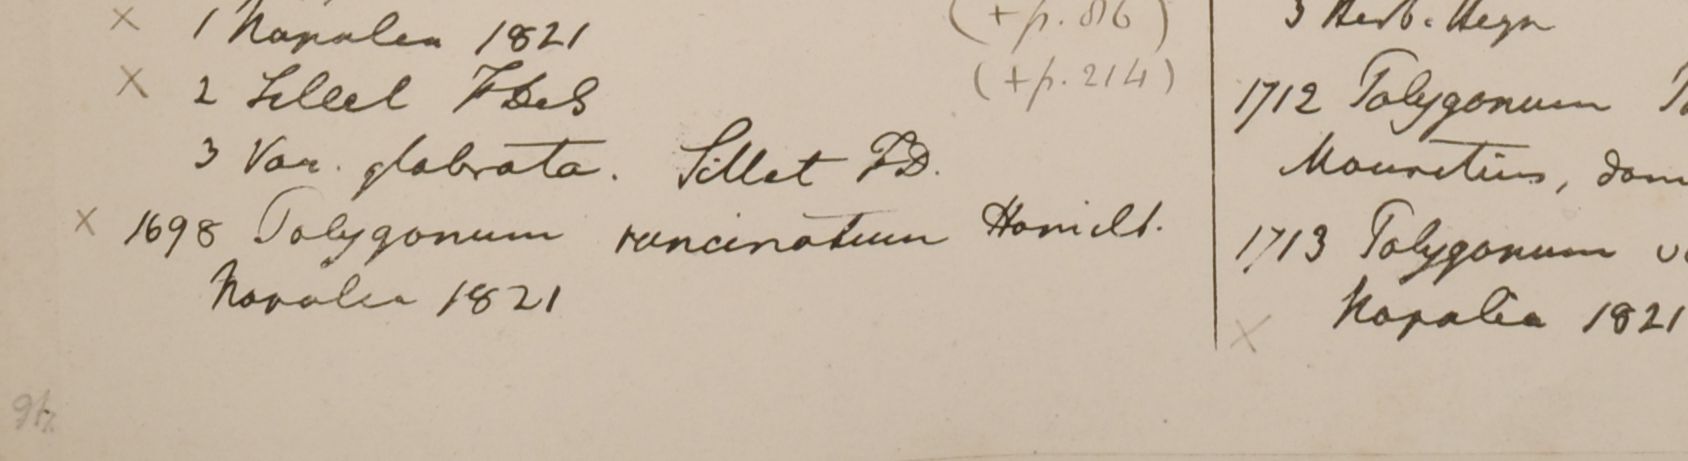 × 1 Napalia 1821 (+p. 86)
× 2 Sillet FDeS (+p. 214)
3 Var. glabrata. Sillet FD.
× 1698 Polygonum runcinatum Hamilt.
Napalia 1821
3 Herb. Heyn
1712 Polygonum
Mauritius, dom
1713 Polygonum
× Napalia 1821